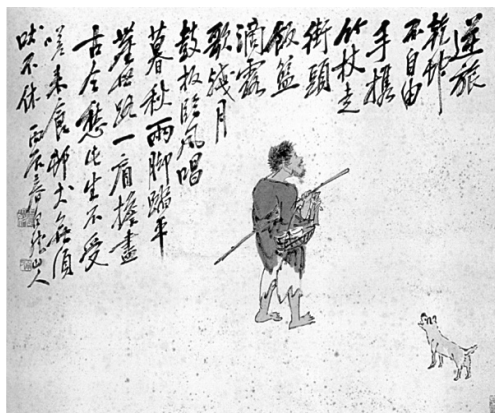 逆旅
乾坤
不自由
手攜
竹杖走
街頭
飯籃
滴露
歌殘月
鼓板臨風唱
暮秋兩脚蹋平
塵世路一肩擔盡
古今愁此生不受
嗟來食邨犬無須
吠不休 丙辰春白龍山人